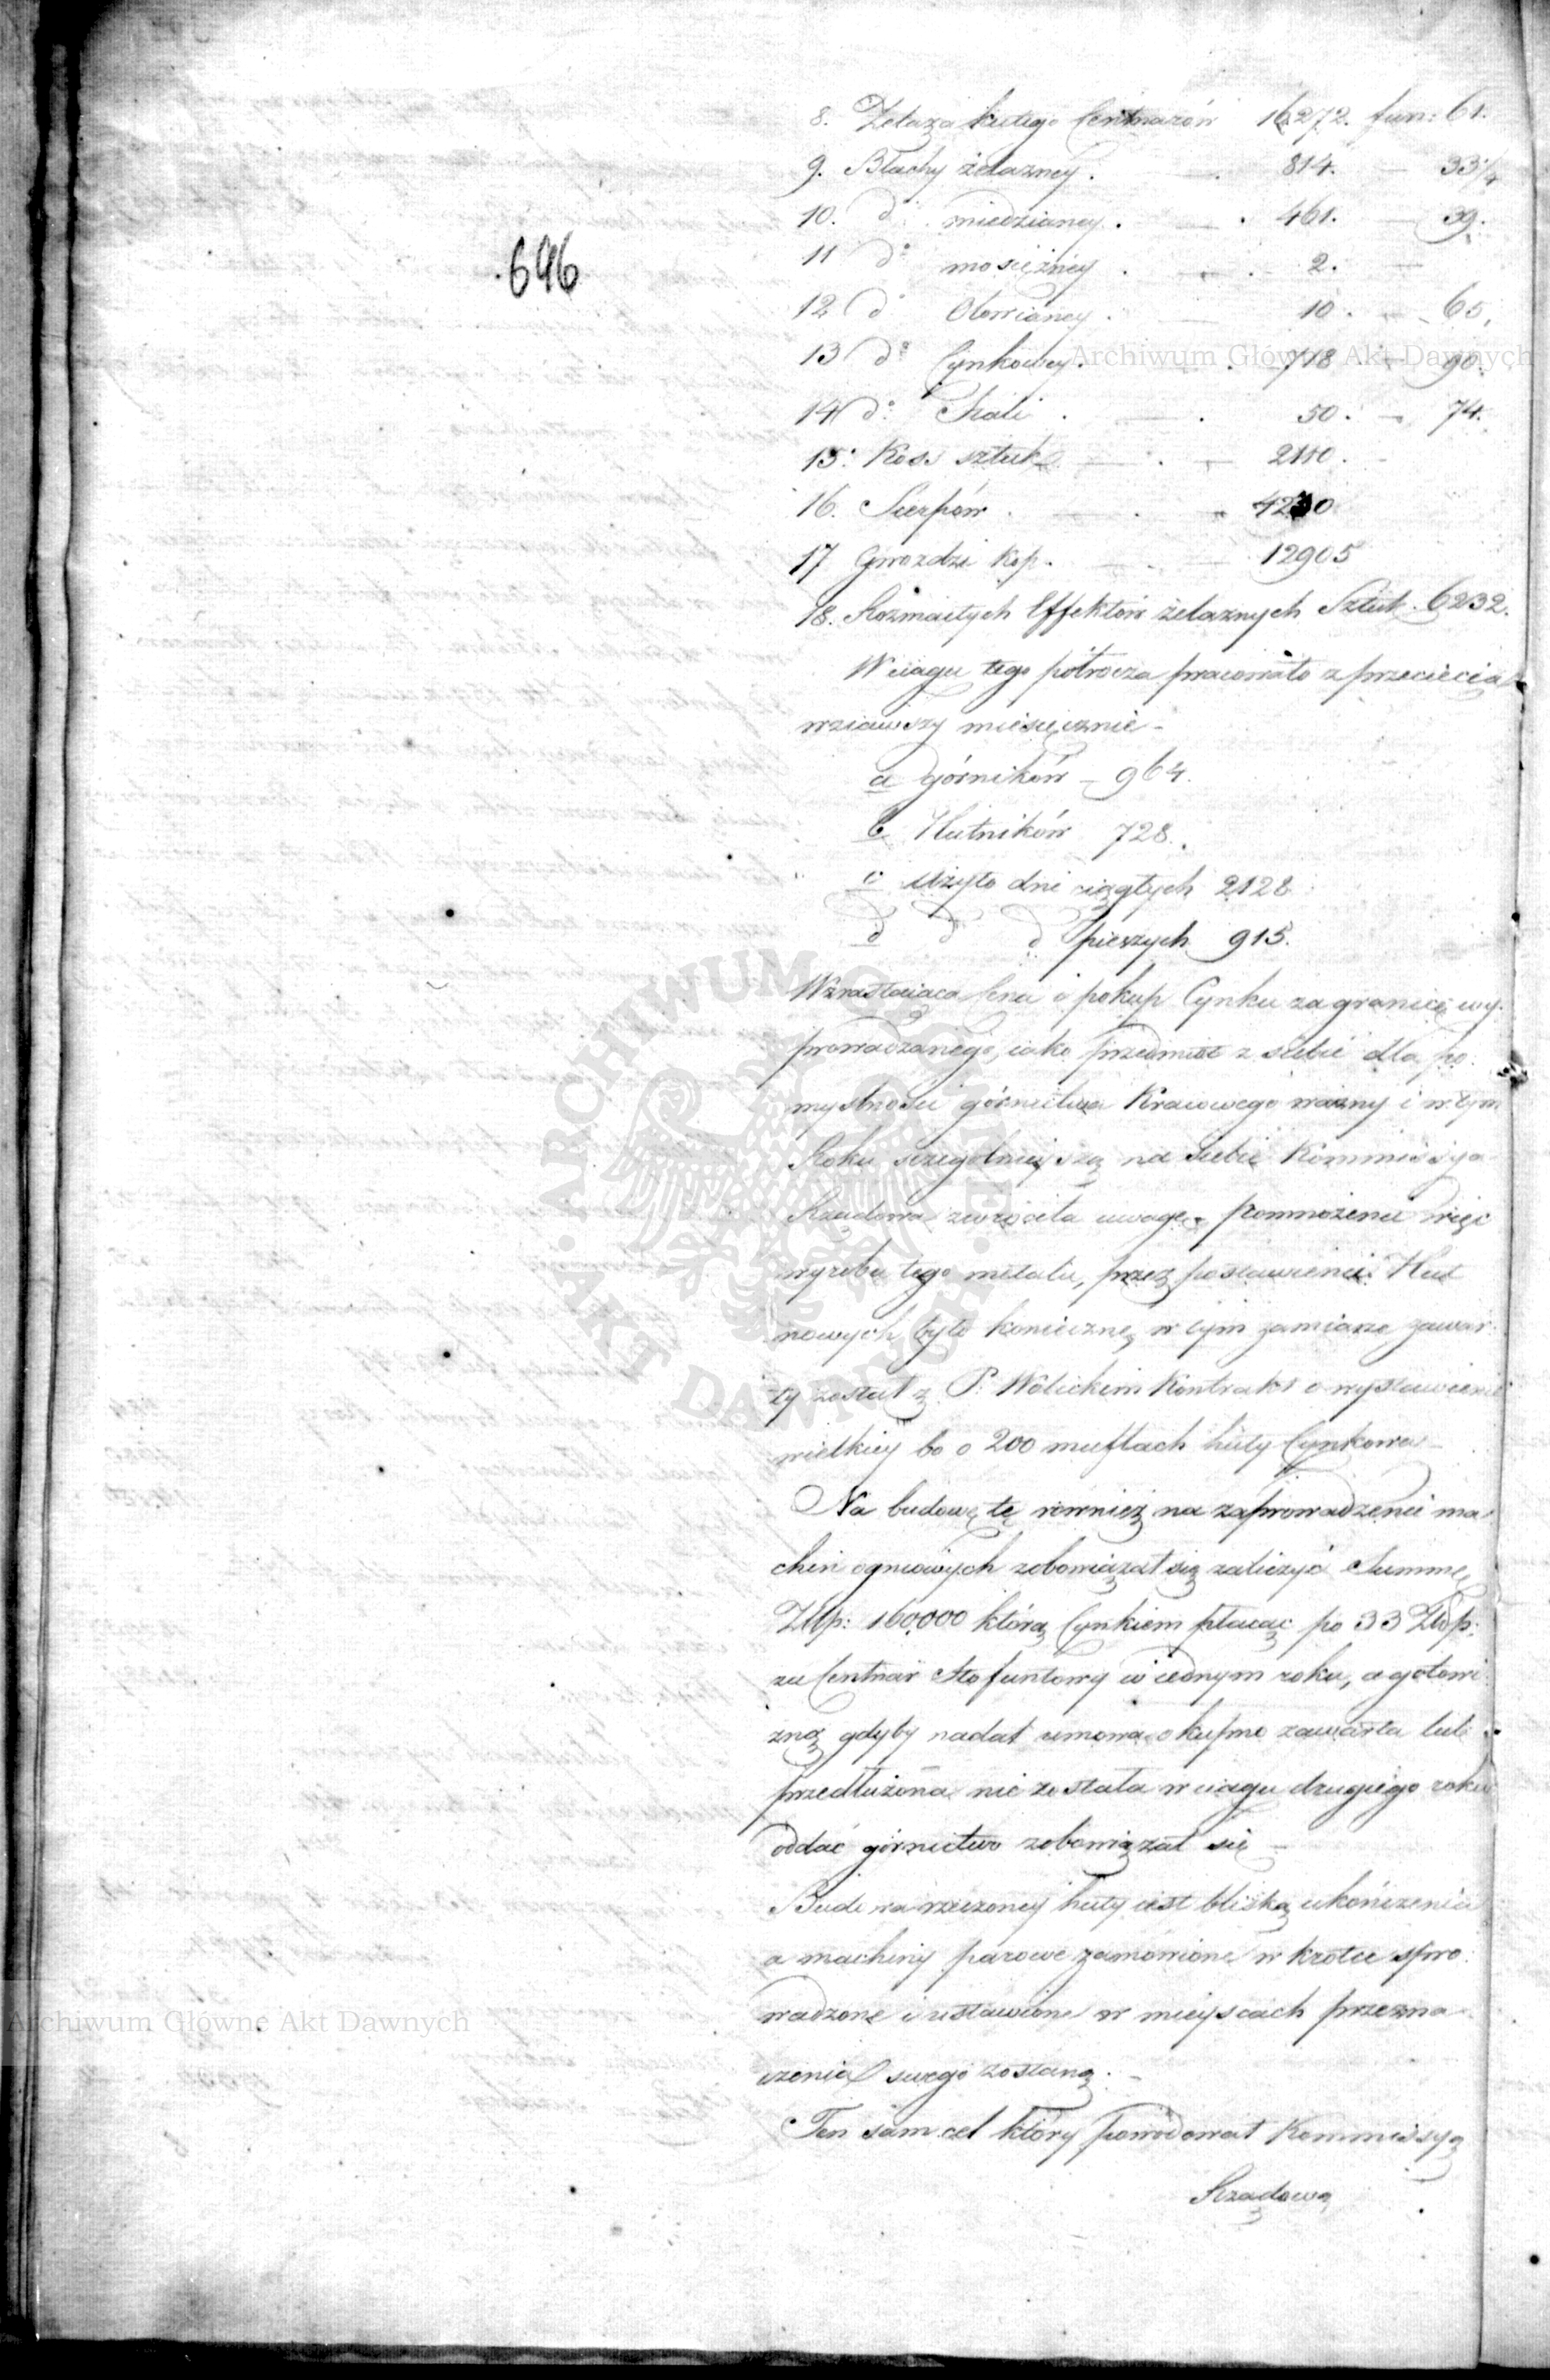 646
8. Żelaza kutego Centnarów 16272. fun: 61.
9. Blachy żelazney. — 814. — 33 1/4
10. do miedzianey. — 461. — 39.
11 do mosiężney. — 2. —
12 do Ołowianey. — 10. — 65,
13 do Cynkowey. 718 — 90.
14 do Stali. — 50. — 74.
15. Kos sztuk — 2110. -
16. Sierpów. — 4230
17 Gwozdzi kop. — 12905
18. Rozmaitych Effektów żelaznych Sztuk. 6232.
W ciągu tego półrocza pracowało z przecięcia
wziąwszy miesięcznie -
a Górników — 964.
b Hutników 728.
c Użyto dni ciągłych 2128
d d d pieszych 915.
Wzrastaiąca Cena i pokup Cynku za granicę wy-
prowadzanego, iako przedmiot z siebie dla po-
myslności górnictwa Kraiowego ważny i w tym
Roku szczególnieyszą na siebie Kommissya
Rządowa zwróciła uwagę. Pomnożenie więc
wyrobu tego metalu, przez postawienie Hut
nowych było konieczne, w tym zamiarze zawar-
ty został z P. Wolickim Kontrakt o wystawienie
wielkiey bo o 200 muflach huty Cynkowey —
Na budowę tę również na zaprowadzenie ma-
chin ogniowych zobowiązał się zaliczyć Summę
Złp: 160,000 którą Cynkiem płacąc po 33 Złp:
za Centnar Stofuntowy w iednym roku, a gotowi-
zną gdyby nadal umowa o kupno zawarta lub
przedłużona nie została w ciągu drugiego roku
oddać górnictwo zobowiązał się —
Budowa rzeczoney huty iest bliską ukończenia
a machiny parowe zamówione w krótce spro-
wadzone i ustawione w mieyscach przezna-
czenia swego zostaną. —
Ten sam cel który powodował Kommissyą
Rządową
Archiwum Główne Akt Dawnych
Archiwum Główne Akt Dawnych
ARCHIWUM GŁÓWNE · AKT DAWNYCH ·